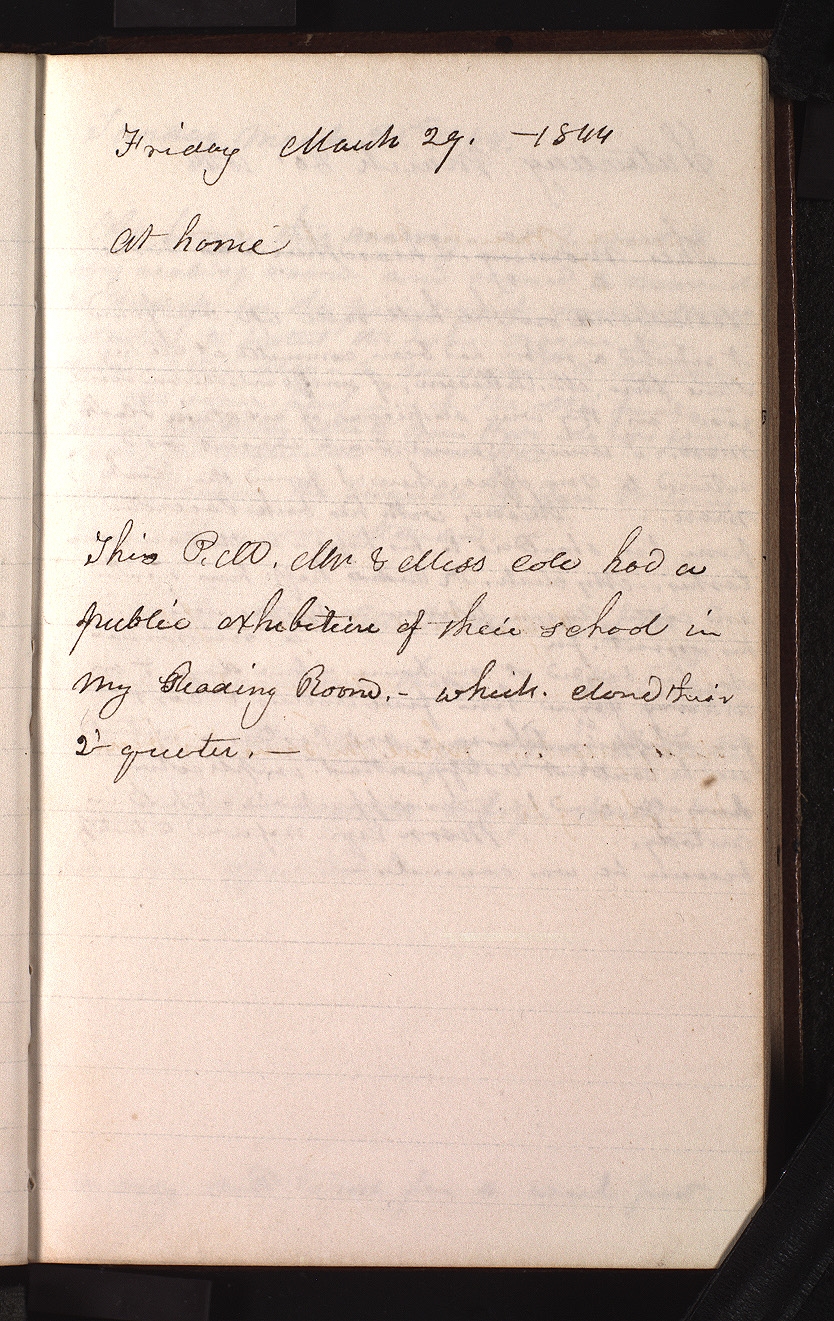 Friday March 29. —1844
At home
This P.M. Mr & Miss Cole had a
public exhibition of their school in
my Reading Room.- which. closed their
2d quater.—